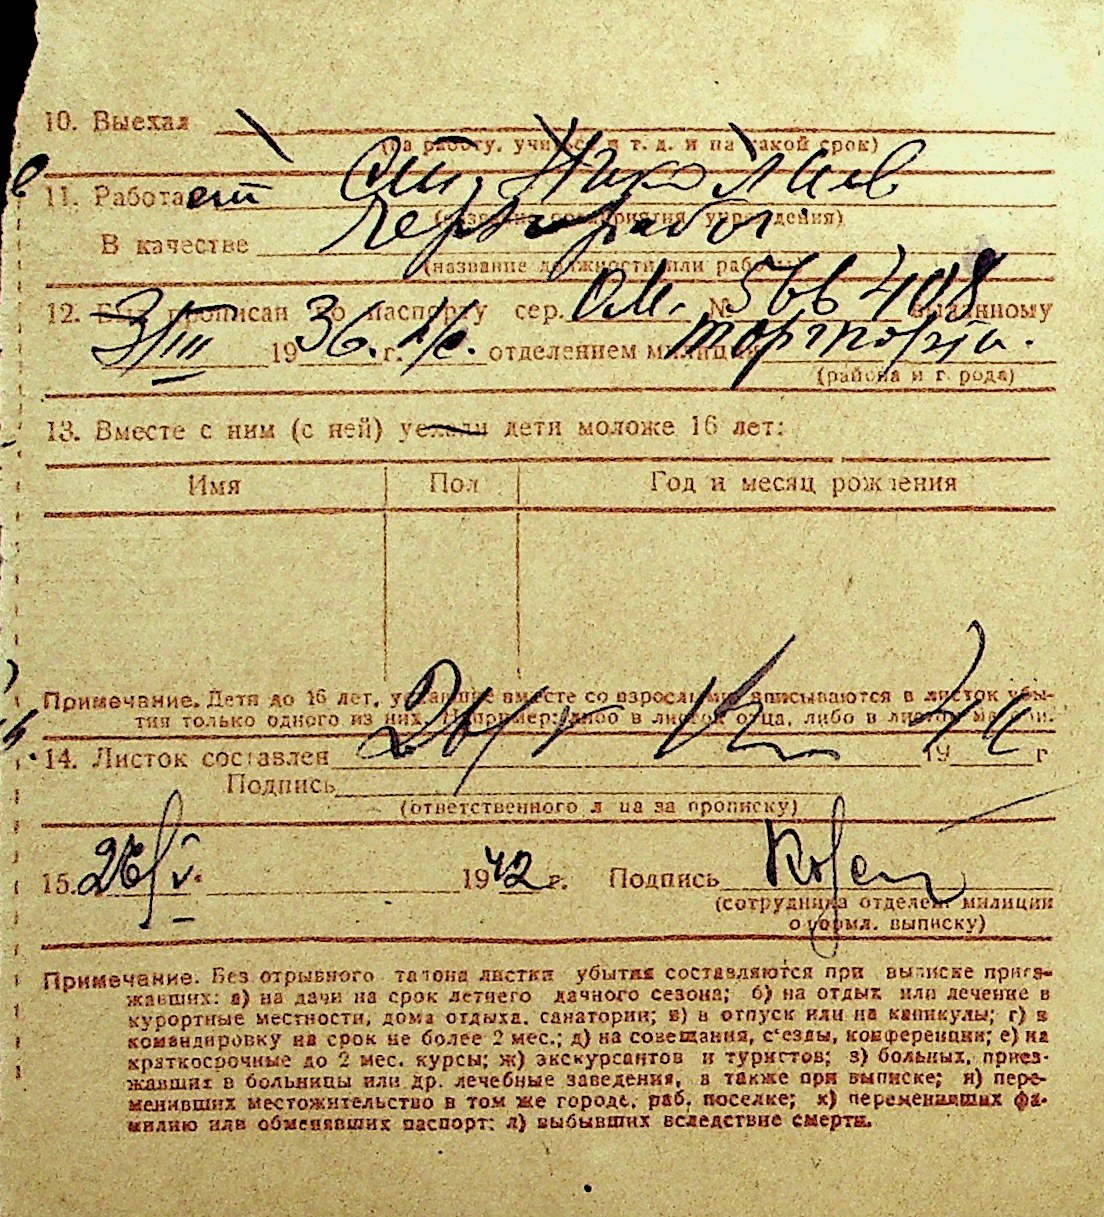 10. Выехал
(на работу, учиться и т. д. и на какой срок)
11. Работает
(название предприятия, учреждения)
В качестве
(название должности или работы)
12. Был прописан по паспорту сер. № 566408 выданному
3/III 1936. г. отделением милиции
(района и города)
13. Вместе с ним (с ней) уехали дети моложе 16 лет:
Имя Пол Год и месяц рождения
Примечание. Дети до 16 лет, уехавшие вместе со взрослыми, вписываются в листок убы-
тия только одного из них. Например: либо в листок отца, либо в листок матери.
14. Листок составлен 19 г
Подпись
(ответственного лица за прописку)
15. 26/V. 1942 г. Подпись
(сотрудника отделен. милиции
оформл. выписку)
Примечание. Без отрывного талона листки убытия составляются при выписке приез-
жавших: а) на дачи на срок летнего дачного сезона; б) на отдых или лечение в
курортные местности, дома отдыха, санатории; в) в отпуск или на каникулы; г) в
командировку на срок не более 2 мес.; д) на совещания, с'езды, конференции; е) на
краткосрочные до 2 мес. курсы; ж) экскурсантов и туристов; з) больных, приез-
жавших в больницы или др. лечебные заведения, а также при выписке; и) пере-
менивших местожительство в том же городе, раб. поселке; к) переменивших фа-
милию или обменявших паспорт; л) выбывших вследствие смерти.